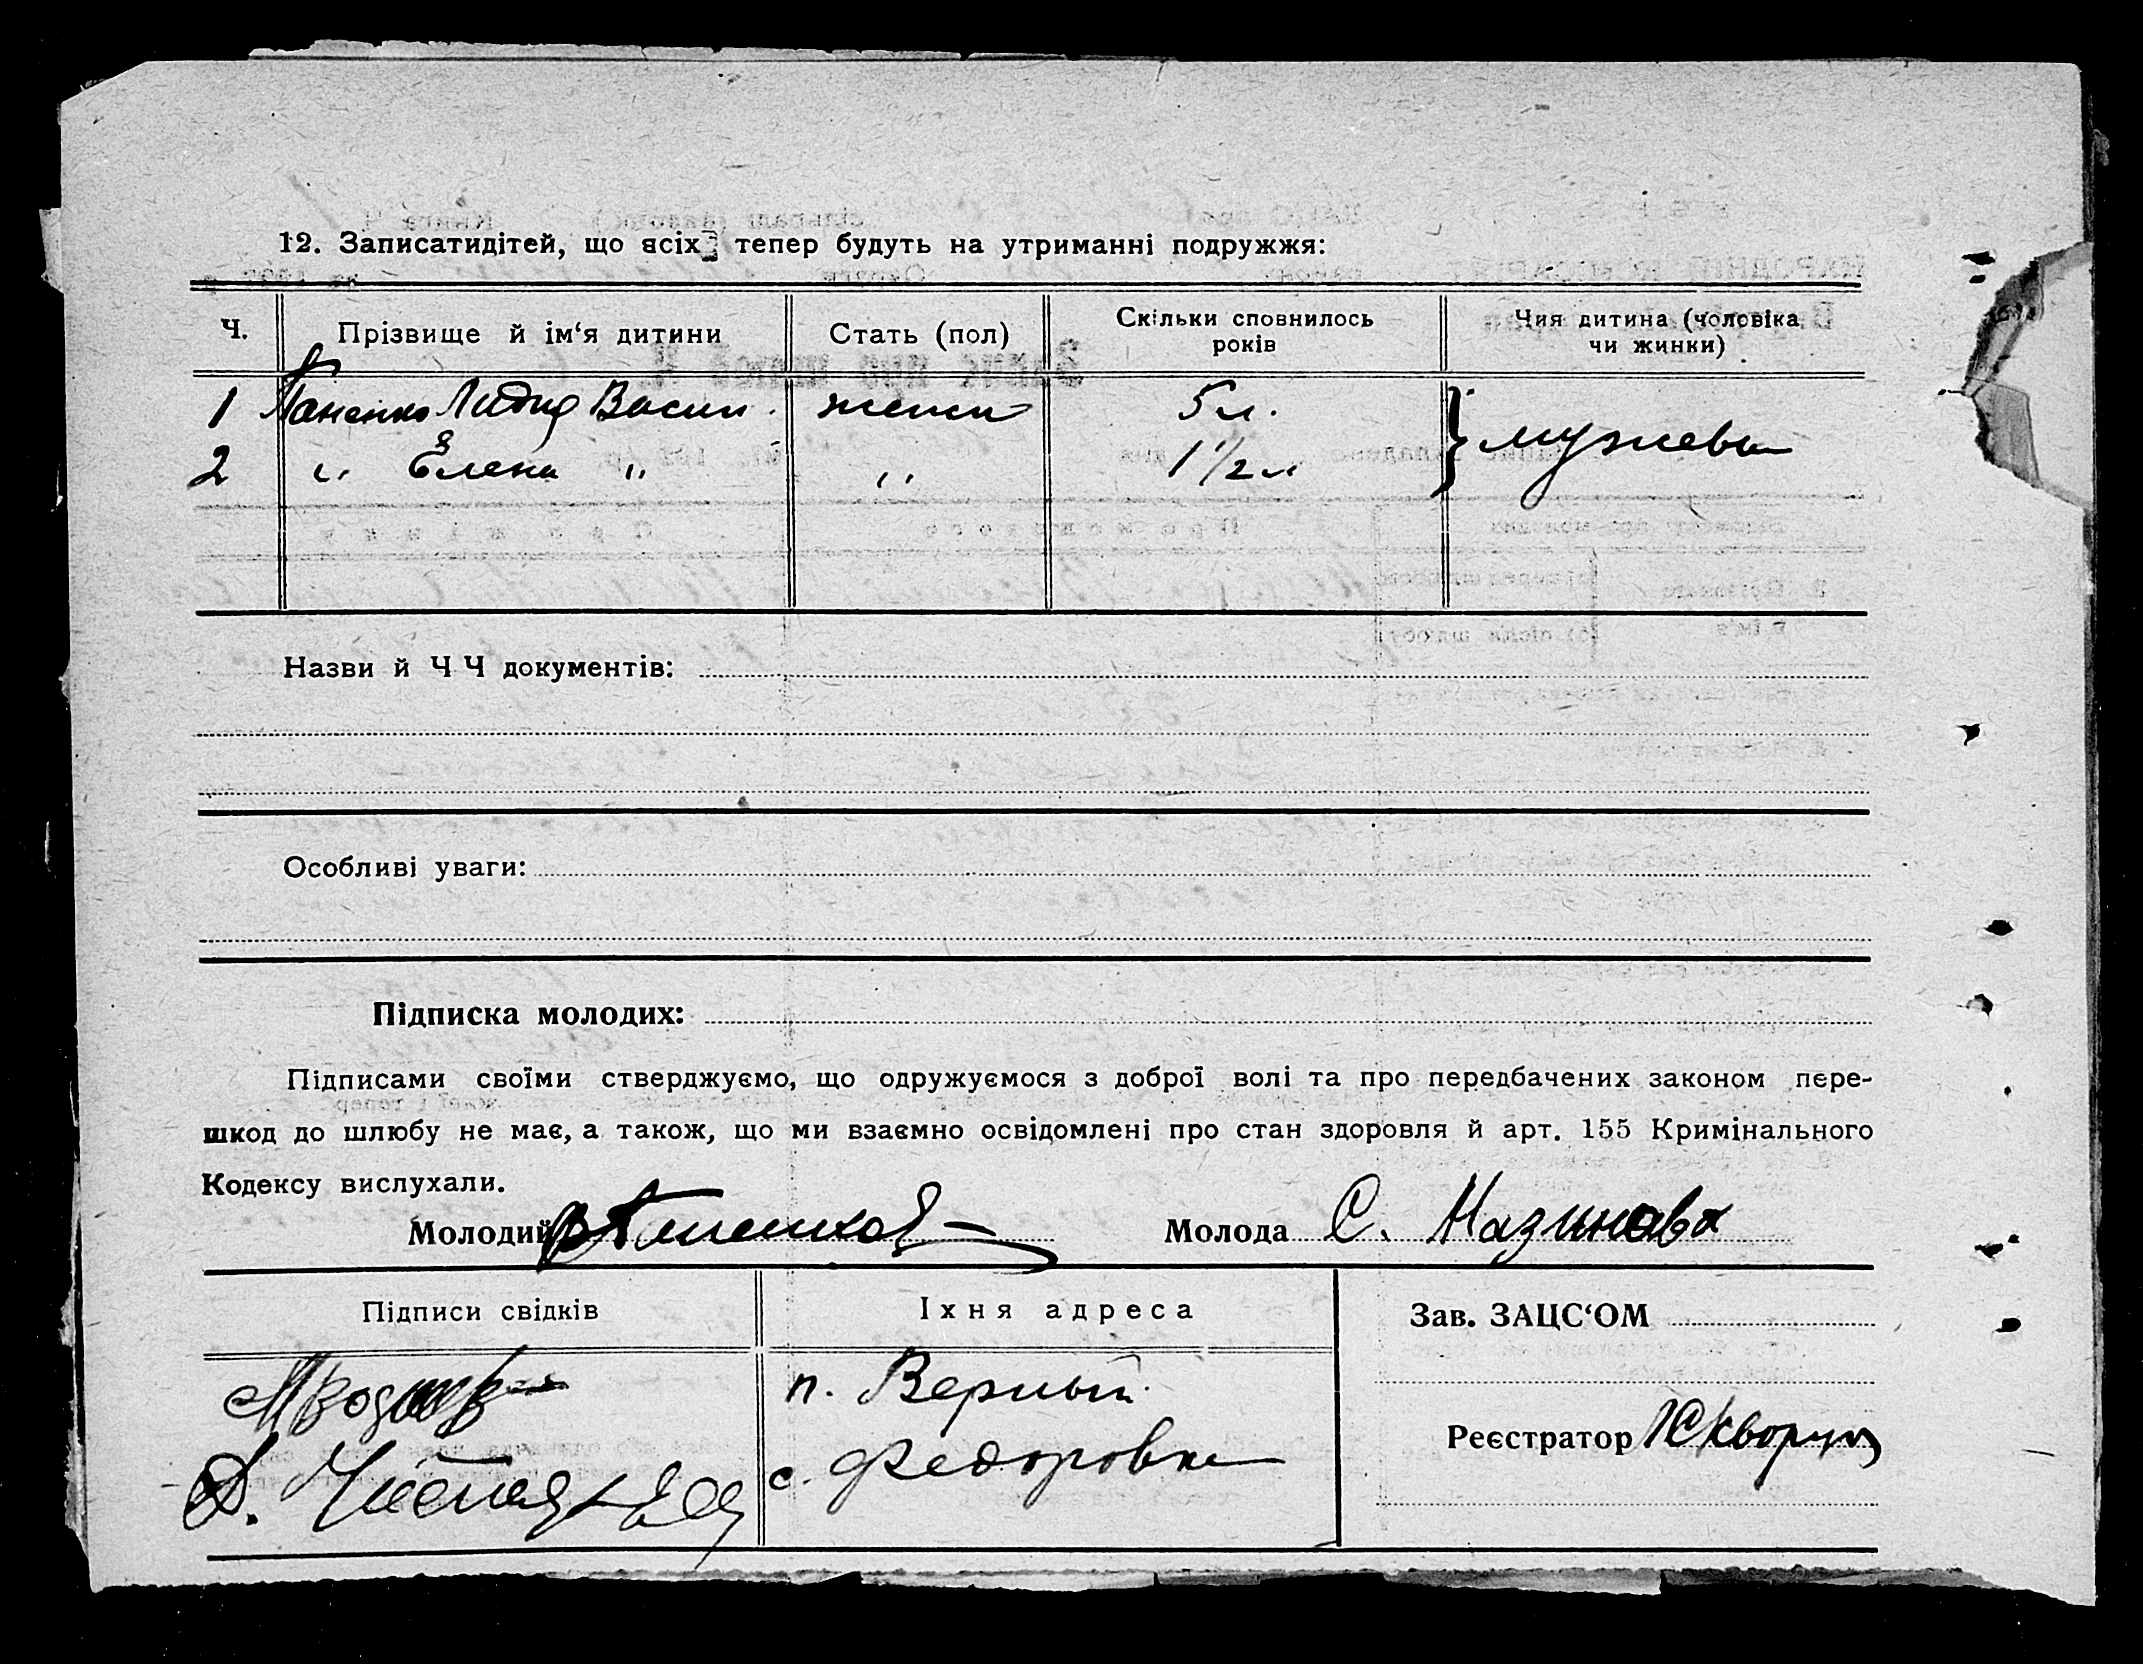 12. Записатидітей, що всіх тепер будуть на утриманні подружжя:
Ч. Прізвище й ім‘я дитини Стать (пол) Скільки сповнилось років Чия дитина (чоловіка чи жинки)
1 Паненко Лидия Васил. женск 5 л. мужевы
2 " Елена " " 1 1/2 л
Назви й Ч Ч документів:
Особливі уваги:
Підписка молодих:
Підписами своїми стверджуємо, що одружуємося з доброї волі та про передбачених законом пере-
шкод до шлюбу не має, а також, що ми взаємно освідомлені про стан здоровля й арт. 155 Кримінального
Кодексу вислухали.
Молодий Молода С. Назинова
Підписи свідків Іхня адреса Зав. ЗАЦС‘ОМ
п. Верный
Реєстратор
с. Федоровка